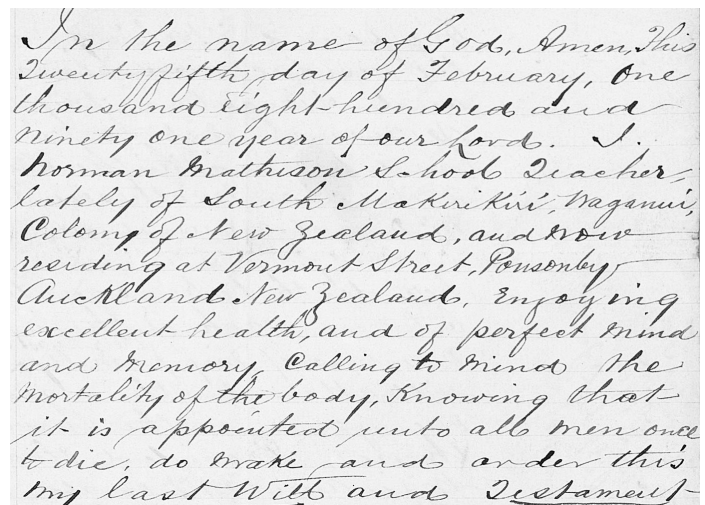 In the name of God, Amen, This
Twenty fifth day of February, One
thousand eight-hundred and
ninety one year of our Lord. I.
Norman Mathison School Teacher,
lately of South Makirikiri, Waganui,
Colony of New Zealand, and now
residing at Vermont Street, Ponsonby
Auckland New Zealand, Enjoying
excellent health, and of perfect mind
and memory, Calling to mind the
mortality of the body, Knowing that
it is appointed unto all men once
to die, do make and order this
my last Will and Testament